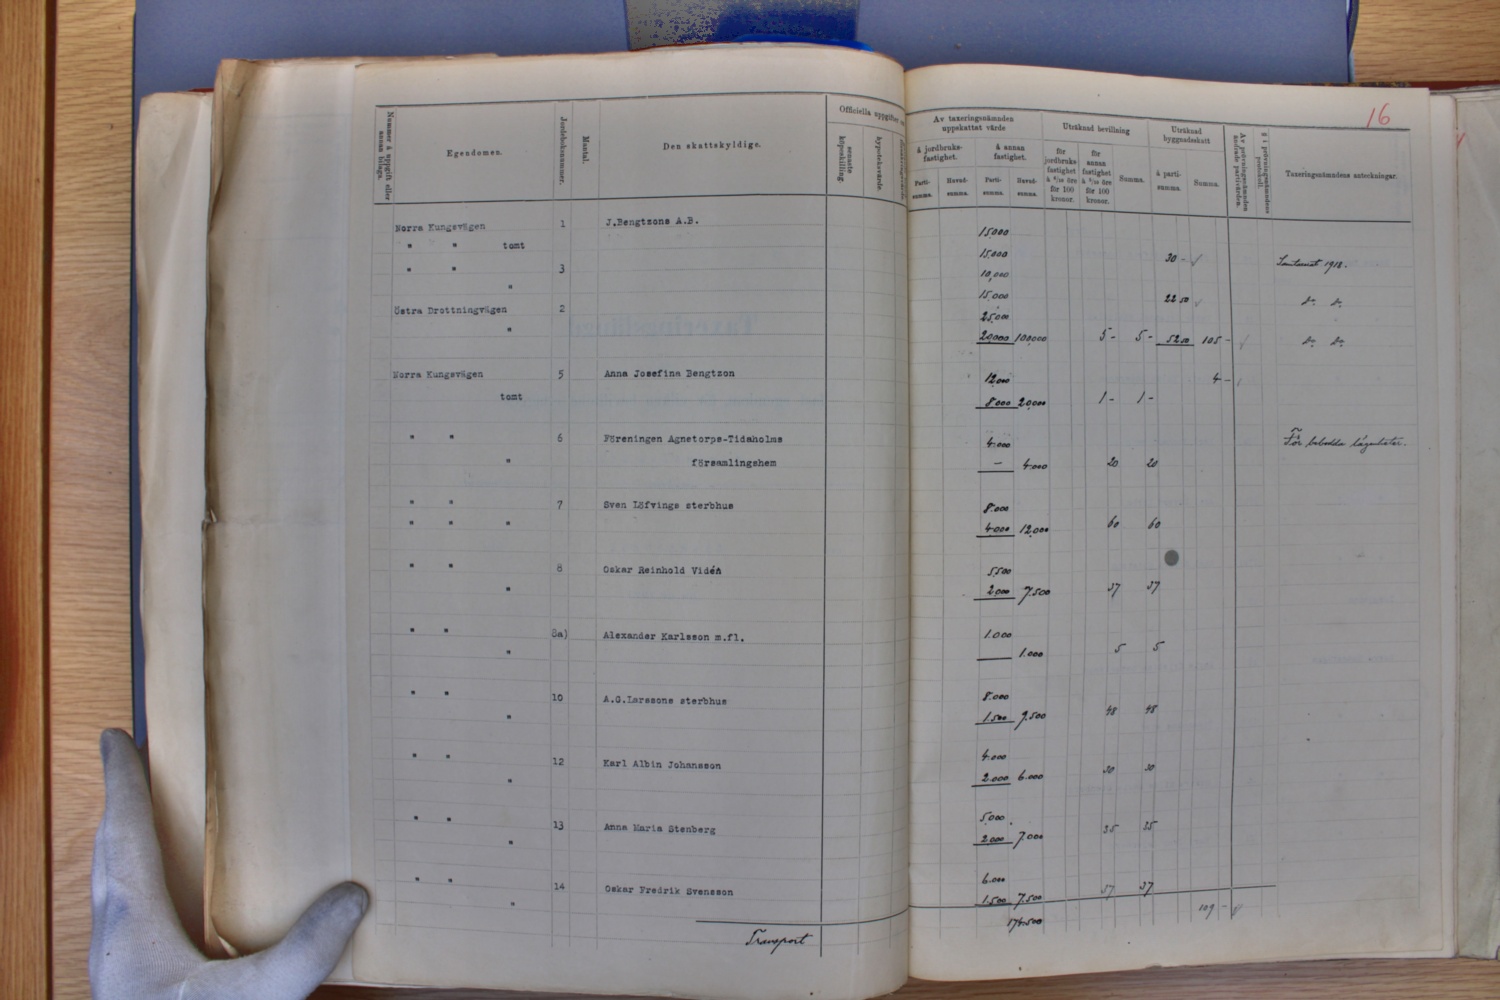 16
Nummer å uppgift eller annan bilaga.
Egendomen.
Jordeboksnummer.
Mantal.
Den skattskyldige.
Officiella uppgifter
senaste köpeskilling.
hypoteksvärde.
Av taxeringsnämnden uppskattat värde
å jordbruksfastighet.
å annan fastighet.
Partisumma.
Huvudsumma.
Partisumma.
Huvudsumma.
Uträknad bevillning
för jordbruksfastighet à 6/10 öre för 100 kronor.
för annan fastighet à 5/10 öre för 100 kronor.
Summa.
Uträknad byggnadsskatt
à partisumma.
Summa.
Av prövningsnämnden ändrade partivärden.
§ i prövningsnämndens protokoll.
Taxeringsnämndens anteckningar.
Norra Kungsvägen 1 J.Bengtzons A.B. 15000
" " tomt 15,000 30 -
" " 3 10,000
" 15,000 22 50 d:o d:o
Östra Drottningvägen 2 25,000
" 20,000 100,000 5 - 5 - 52 50 105 - d:o d:o
Norra Kungsvägen 5 Anna Josefina Bengtzon 12,000 4 -
tomt 8000 20000 1 - 1 -
" " 6 Föreningen Agnetorps-Tidaholms 4.000 För bebodda lägenheter.
" församlingshem — 4.000 20 20
" " 7 Sven Löfvings sterbhus 8.000
" " " 4.000 12,000 60 60
" " 8 Oskar Reinhold Vidén 5,500
" 2,000 7.500 37 37
" " 8a) Alexander Karlsson m.fl. 1.000
" 1.000 5 5
" " 10 A.G.Larssons sterbhus 8.000
" 1.500 9.500 48 48
" " 12 Karl Albin Johansson 4.000
" 2.000 6.000 30 30
" " 13 Anna Maria Stenberg 5,000
" 2.000 7.000 35 35
" " 14 Oskar Fredrik Svensson 6.000
" 1.500 7.500 37 37
Transport 174.500 109 -